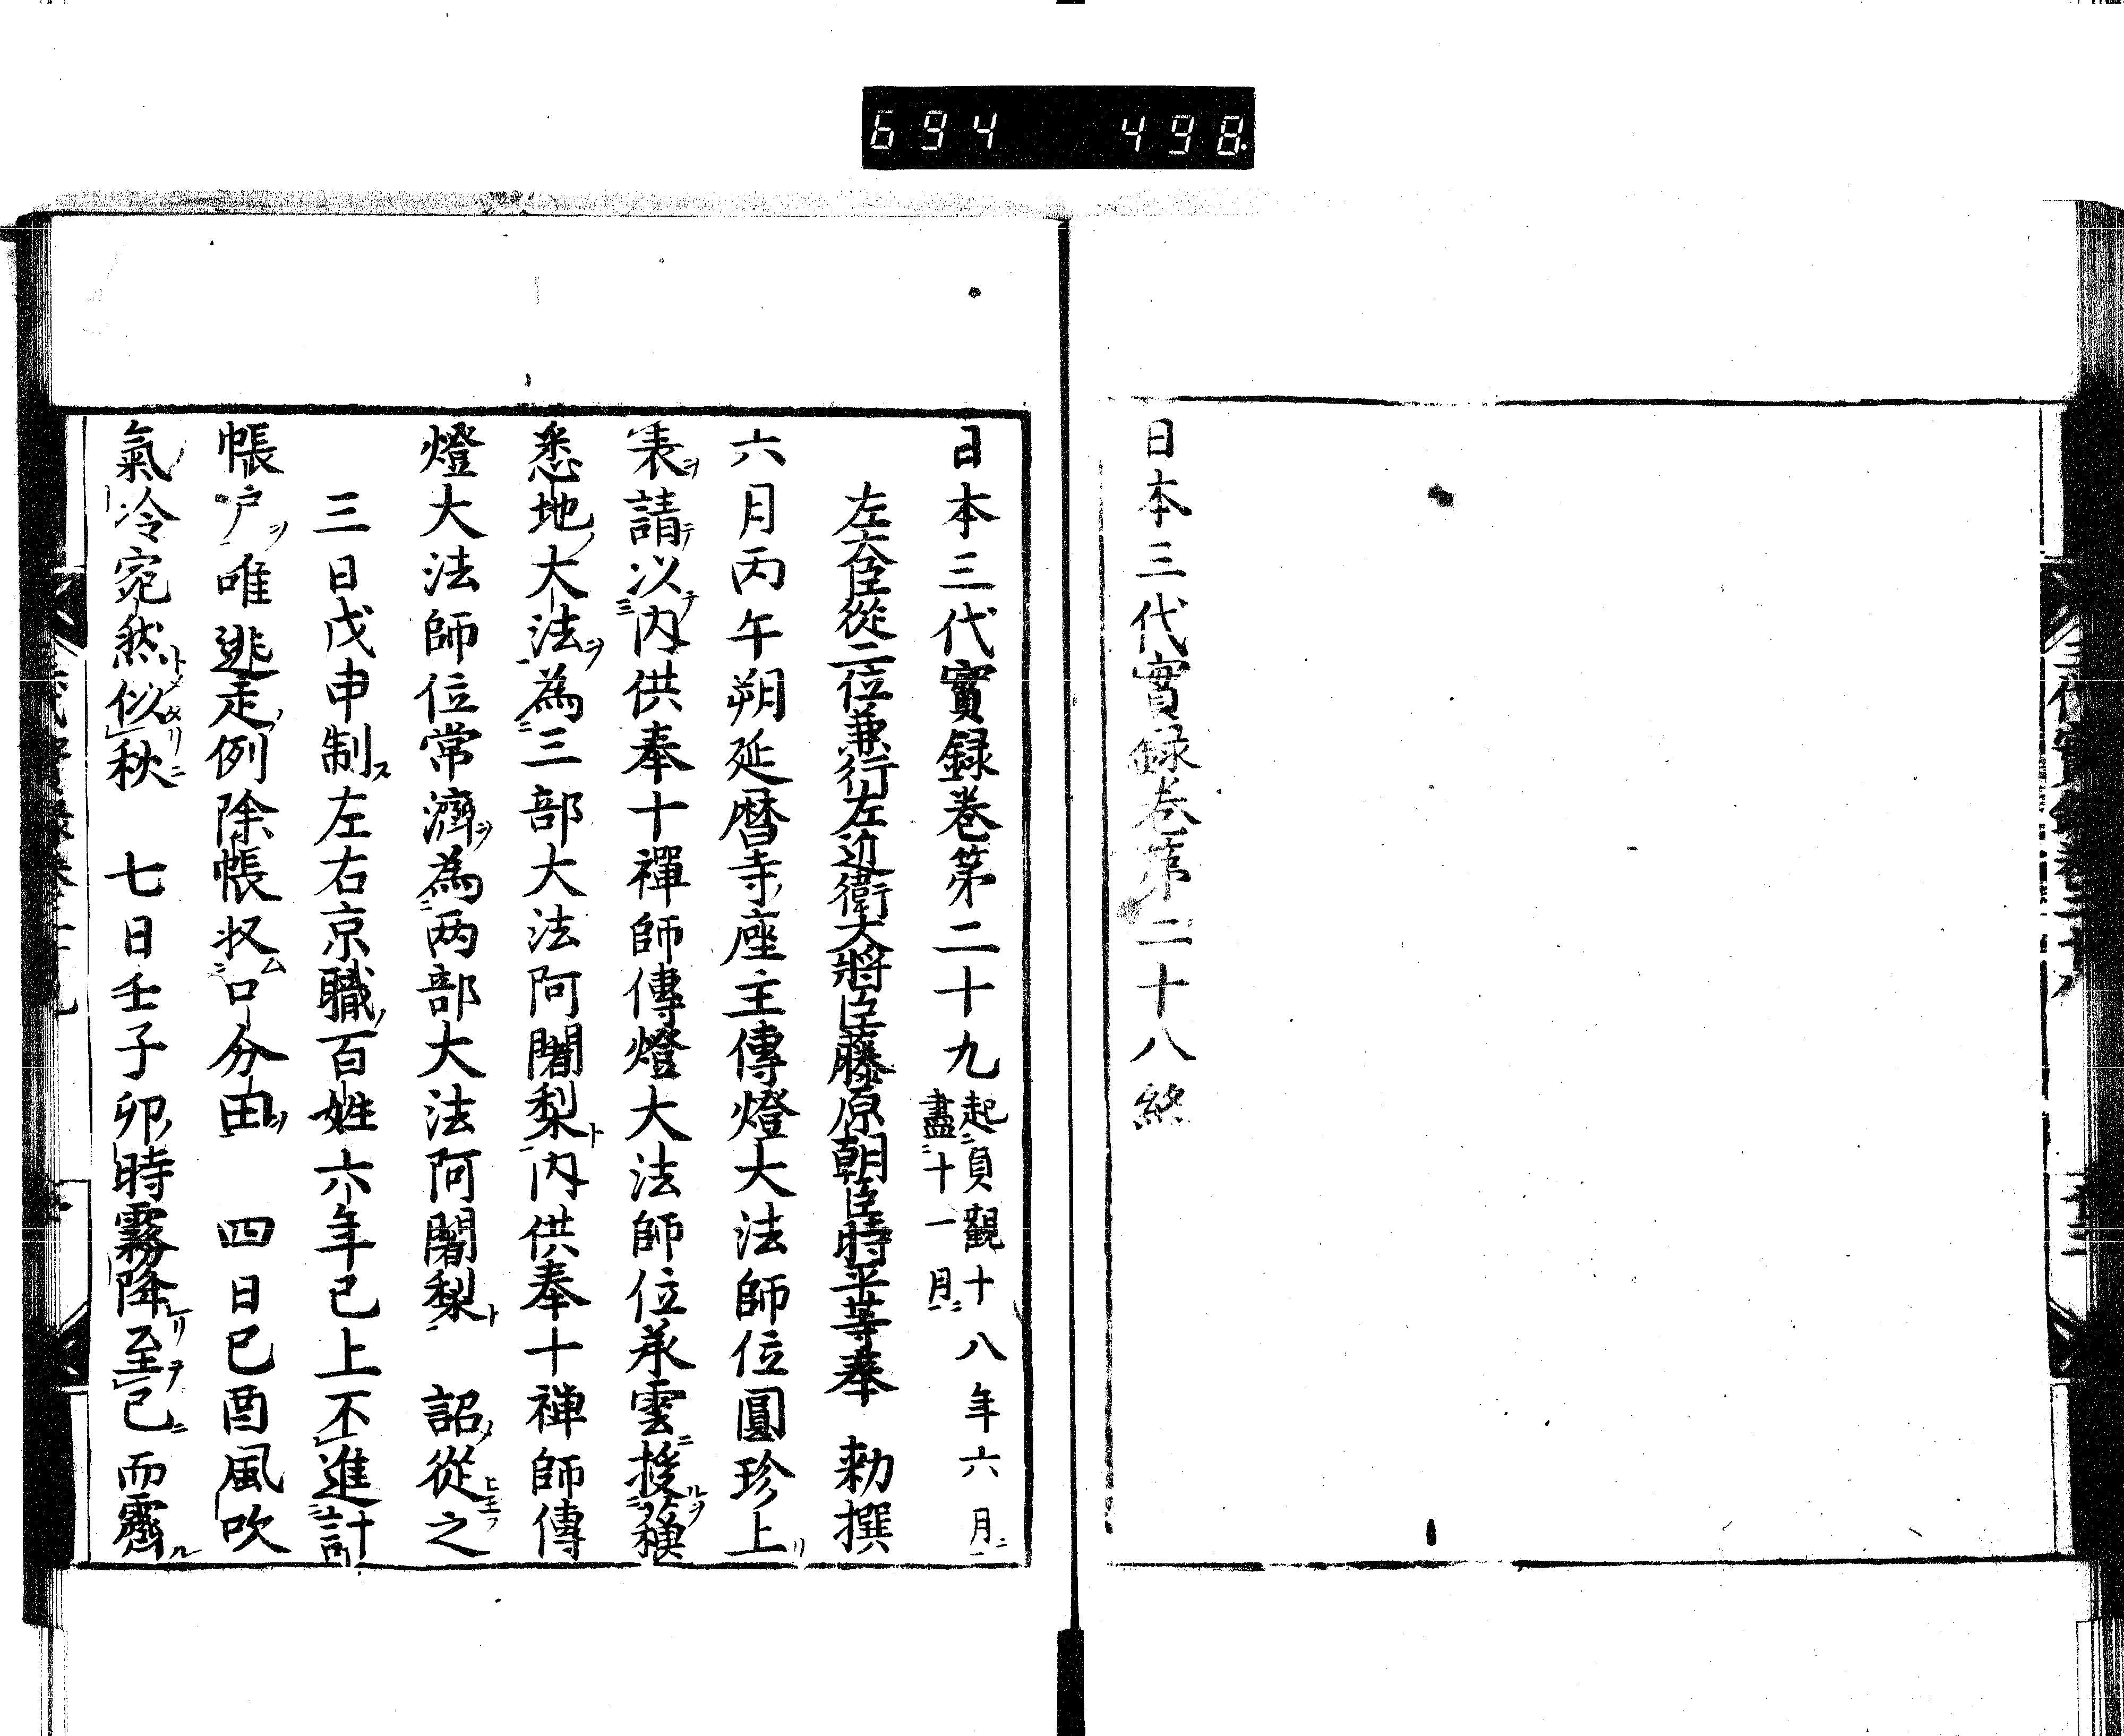 694 498
日本三代實録卷第二十八終
日本三代實録卷第二十九 起貞觀十八年六月
盡十一月
左大臣從二位兼行左近衛大將臣藤原朝臣時平等奉 勅撰
六月丙午朔延暦寺座主傳燈大法師位圓珍上
表請以內供奉十禪師傳燈大法師位承雲授蘇
悉地大法為三部大法阿闍梨內供奉十禅師傳
燈大法師位常濟為两部大法阿闍梨 詔從之
三日戊申制左右京職百姓六年已上不進計
帳戸唯逃走例除帳収口分田 四日己酉風吹
氣冷宛然似秋 七日壬子卯時霧降至巳而霽